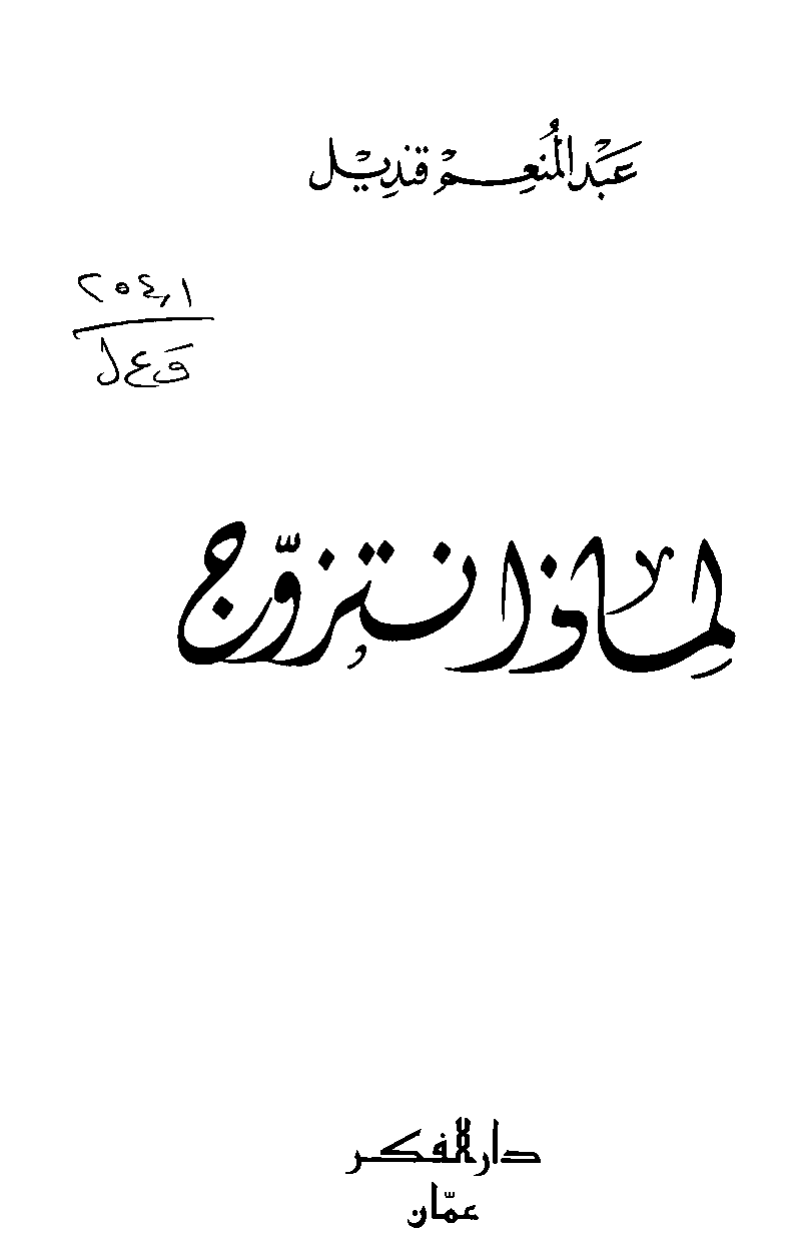 عَبْد المُنعِم قنديل
٢٥٤,١
و ع ل
لِماذا نتزوّج
دار الفكر
عمّان